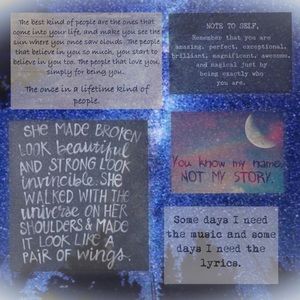 The best kind of people are the ones that
come into your life, and make you see the
sun where you once saw clouds. The people
that believe in you so much, you start to
believe in you too. The people that love you,
simply for being you.
The once in a lifetime kind of
people.
NOTE TO SELF,
Remember that you are
amazing, perfect, exceptional,
brilliant, magnificent, awesome,
and magical just by
being exactly who
you are.
SHE MADE BROKEN
LOOK beautiful
AND STRONG LOOK
invincible. SHE
WALKED WITH THE
universe ON HER
SHOULDERS & MADE
IT LOOK LIKE A
PAIR OF wings.
You know my name,
NOT MY STORY.
Some days I need
the music and some
days I need the
lyrics.